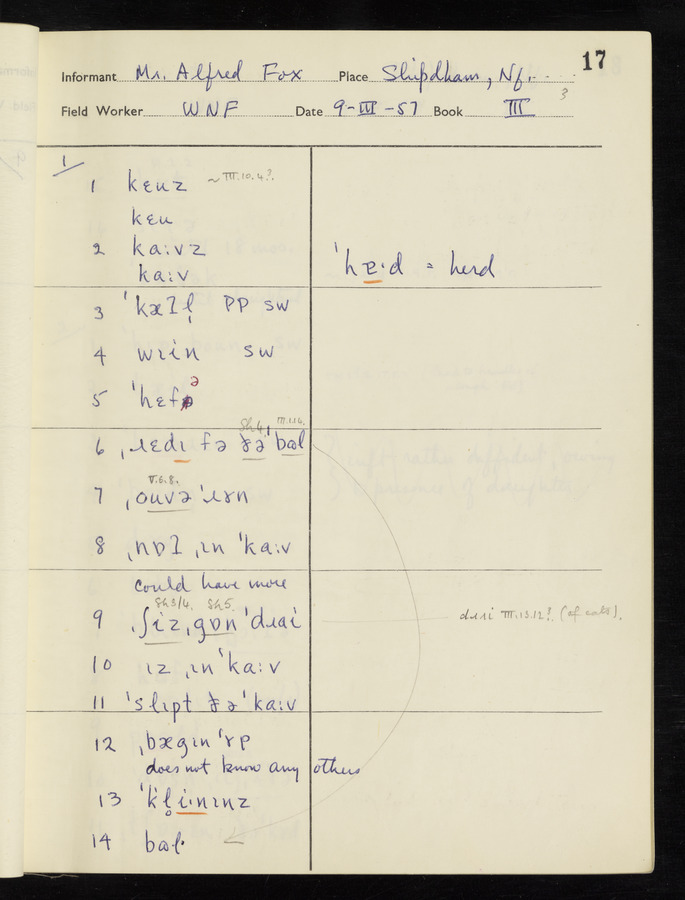 17
Informant Mr. Alfred Fox Place Shipdham, Nf.
3
Field Worker WNF Date 9-III-57 Book III
1
1 kɛuz ~ III.10.4?
kɛu
2 ka:vz
ka:v
ˈhɐ·d = herd
3 ˈkæɪl̩ PP SW
4 wɪin SW
5 ˈhɛfə
Sh4 III.1.14.
6 ˌɹɛdɪ fə ðə ˈbɷl
V.6.8.
7 ˌouvə ˈɹɤn
8 ˌnɒɪ ˌɪn ˈka:v
could have more
Sh3/4. Sh5.
9 ˌʃiz ˌgɒn ˈdɹai
dɹɪi III.13.12? (of cats).
10 ɪz ˌɪn ˈka:v
11 ˈslɪpt ðə ˈka:v
12 ˌbægɪn ˈɤp
does not know any others
13 ˈkl̥i·nɪnz
14 bɷl·